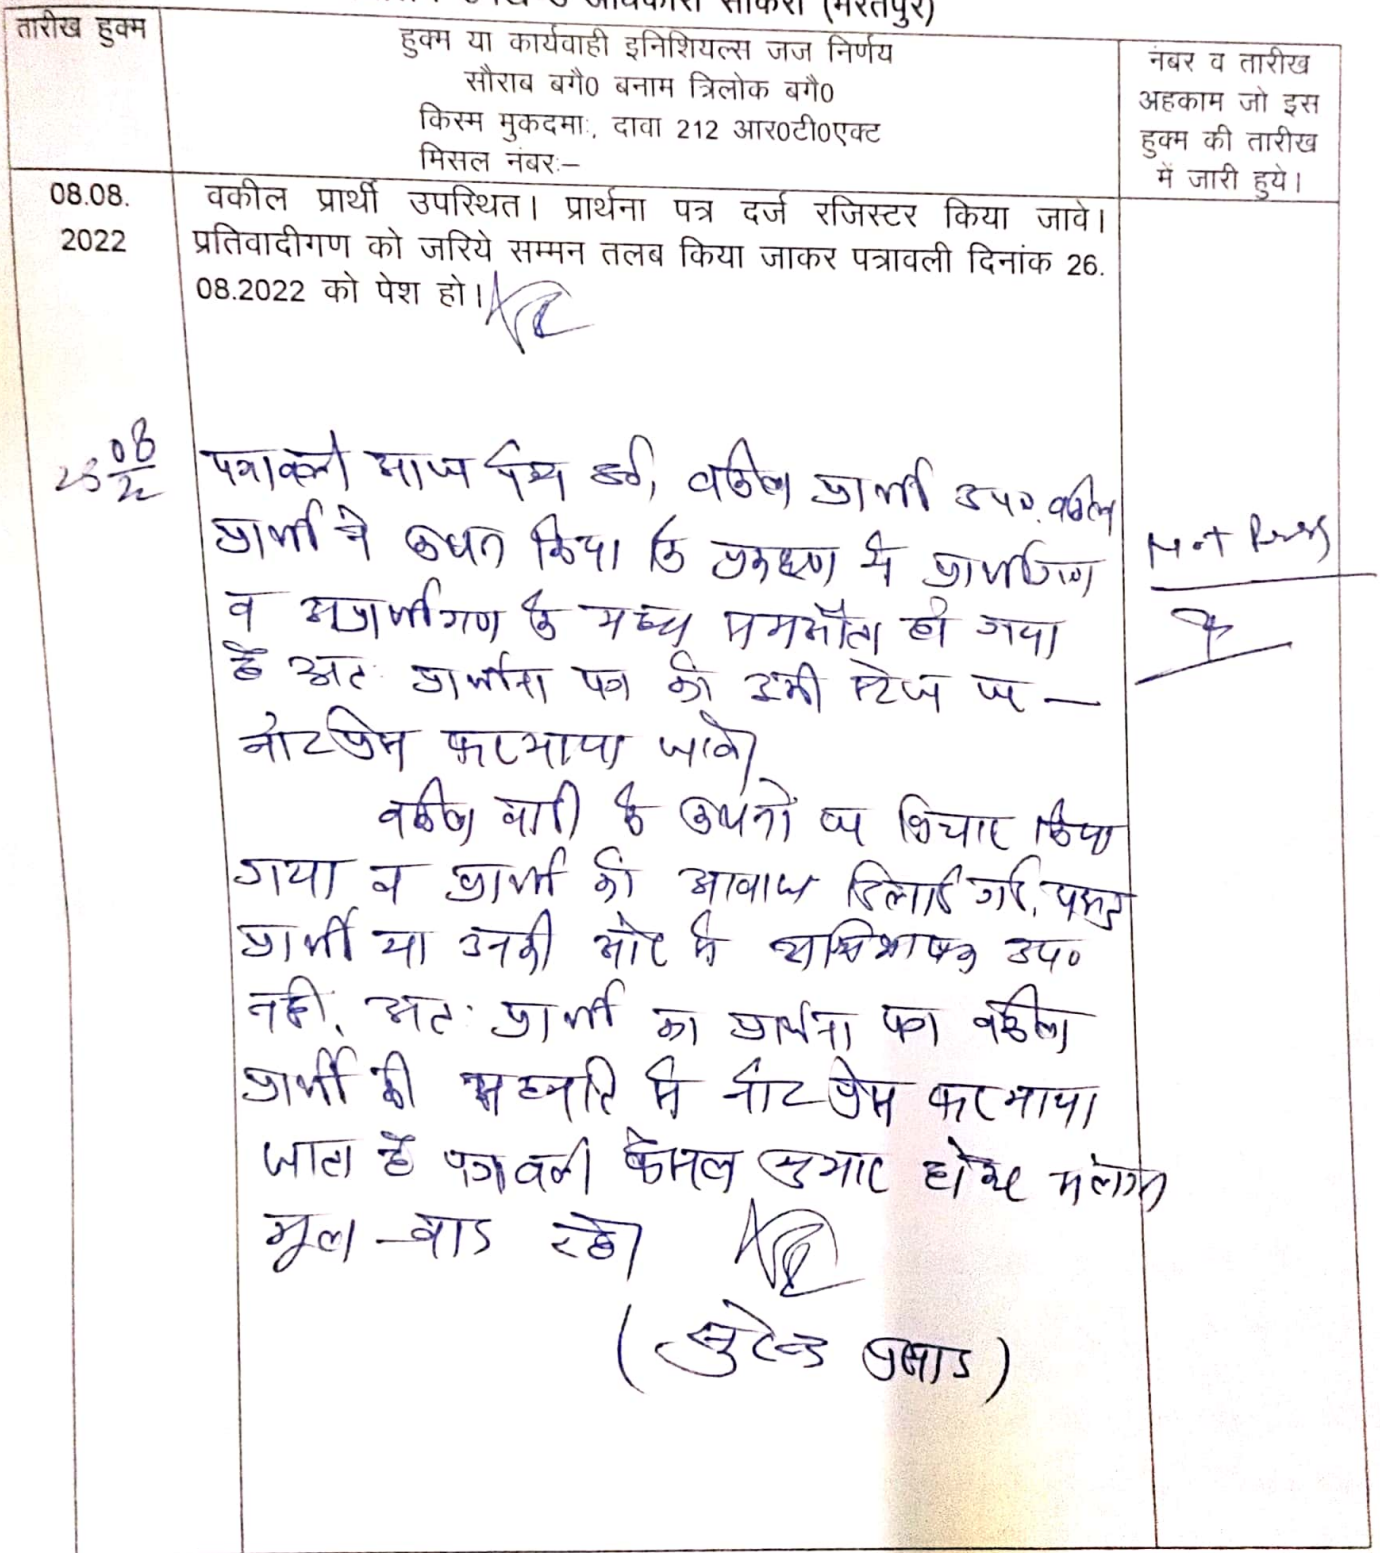 सीकरी (भरतपुर)
तारीख हुक्म
हुक्म या कार्यवाही इनिशियल्स जज निर्णय
सौराब बगै0 बनाम त्रिलोक बगै0
किस्म मुकदमाः, दावा 212 आर0टी0एक्ट
मिसल नंबरः–
नंबर व तारीख
अहकाम जो इस
हुक्म की तारीख
में जारी हुये।
08.08.
2022
वकील प्रार्थी उपस्थित। प्रार्थना पत्र दर्ज रजिस्टर किया जावे।
प्रतिवादीगण को जरिये सम्मन तलब किया जाकर पत्रावली दिनांक 26.
08.2022 को पेश हो।
23 08/22
पत्रावली आज पेश हुई, वकील प्रार्थी उप०. वकील
प्रार्थी ने कथन किया कि प्रकरण में प्रार्थीगण
व अप्रार्थीगण के मध्य समझौता हो गया
है अतः प्रार्थना पत्र को इसी स्टेज पर –
नोट प्रेस फरमाया जावे।
वकील वादी के कथनों पर विचार किया
गया व प्रार्थी को आवाज दिलाई गई, परन्तु
प्रार्थी या उनकी ओर से अभिभाषक उप०
नहीं. अतः प्रार्थी का प्रार्थना पत्र वकील
प्रार्थी की सहमति से नोट प्रेस फरमाया
जाता है पत्रावली फैसल शुमार होकर संलग्न
मूल वाद रहे।
(सुरेन्द्र प्रसाद)
Not Press